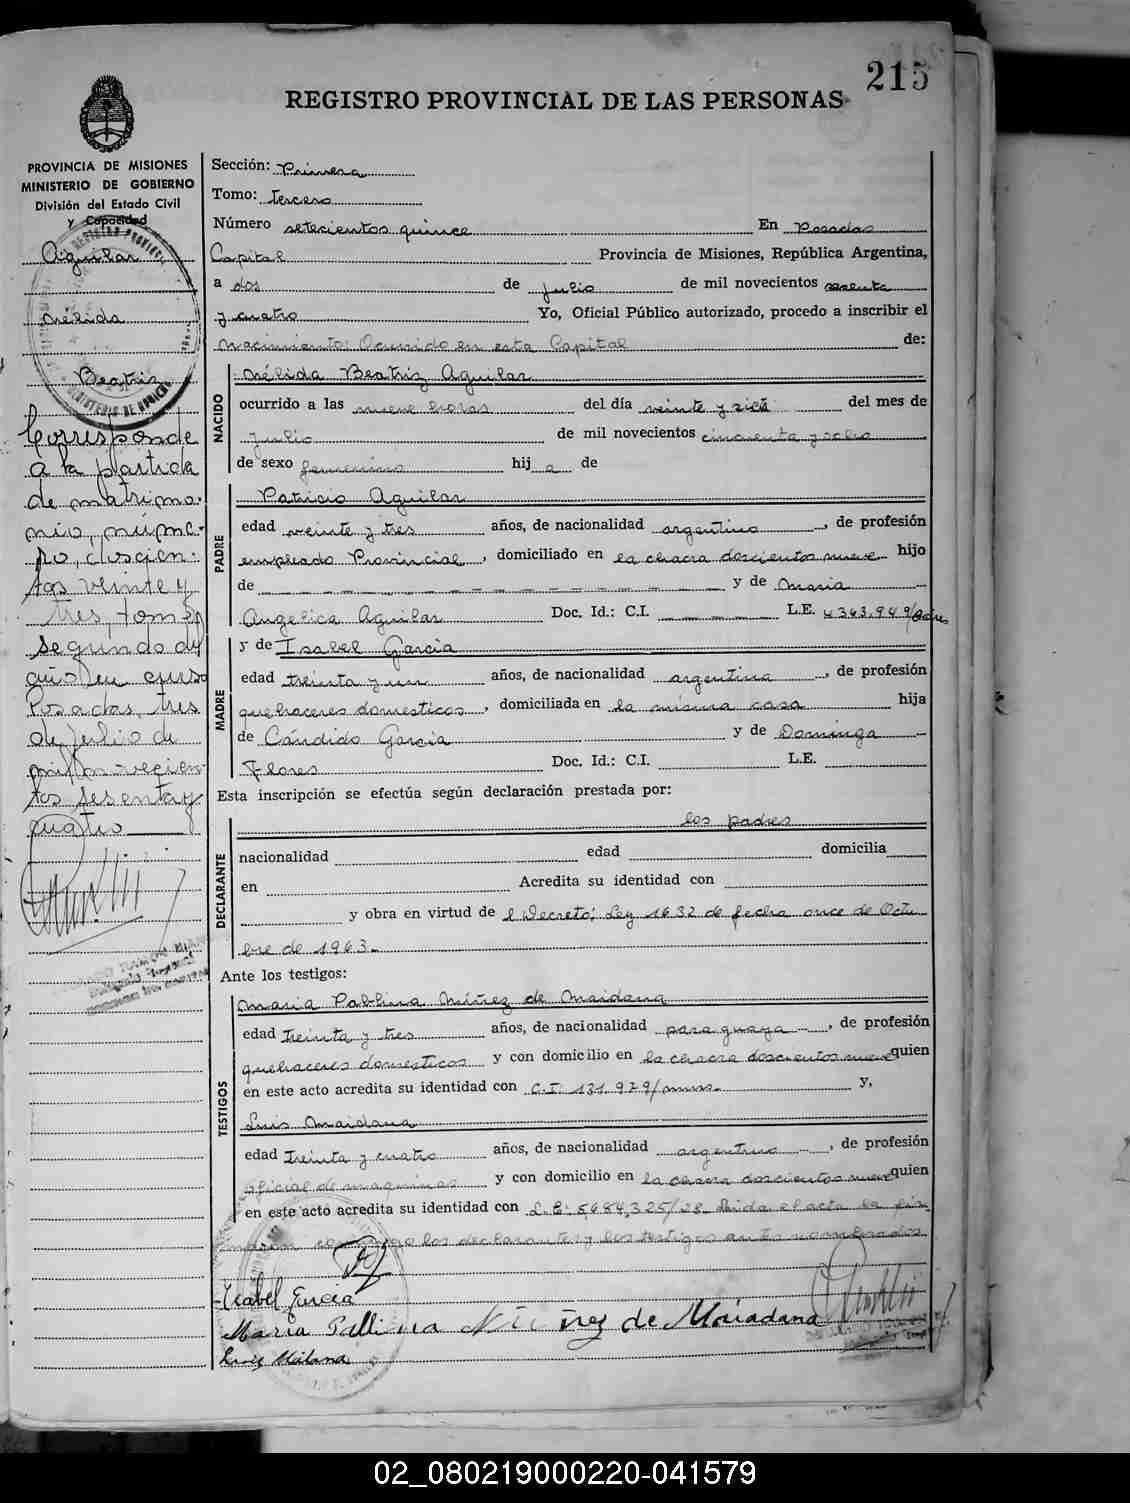 215
REGISTRO PROVINCIAL DE LAS PERSONAS
PROVINCIA DE MISIONES
MINISTERIO DE GOBIERNO
División del Estado Civil
y Capacidad
Aguilar
Nélida
Beatriz
Corresponde
a la partida
de matrimo-
nio, núme-
ro, doscien-
tos veinte y
tres, tomo
segundo del
año en curso
Posadas, tres
de julio de
mil novecien-
tos sesenta y
cuatro
Sección: Primera
Tomo: tercero
Número setecientos quince En Posadas
Capital Provincia de Misiones, República Argentina,
a dos de julio de mil novecientos sesenta
y cuatro Yo, Oficial Público autorizado, procedo a inscribir el
nacimiento: Ocurrido en esta Capital de:
NACIDO
Nélida Beatriz Aguilar
ocurrido a las nueve horas del día veinte y siete del mes de
julio de mil novecientos cincuenta y ocho
de sexo femenino hij a de
PADRE
Patricio Aguilar
edad veinte y tres años, de nacionalidad argentino, de profesión
empleado Provincial, domiciliado en la chacra doscientos nueve hijo
de y de Maria
Angelica Aguilar Doc. Id.: C.I. L.E. 4363.949/
MADRE
y de Isabel Garcia
edad treinta y un años, de nacionalidad argentina, de profesión
quehaceres domesticos, domiciliada en la misma casa hija
de Cándido Garcia y de Dominga
Flores Doc. Id.: C.I. L.E.
Esta inscripción se efectúa según declaración prestada por:
DECLARANTE
los padres
nacionalidad edad domicilia
en Acredita su identidad con
y obra en virtud de el Decreto; Ley 1632 de fecha once de Octu
bre de 1963.-
Ante los testigos:
TESTIGOS
Maria Pablina Núñez de Maidana
edad treinta y tres años, de nacionalidad paraguaya, de profesión
quehaceres domesticos y con domicilio en la chacra doscientos nueve quien
en este acto acredita su identidad con C.I. 131.979/ y,
Luis Maidana
edad treinta y cuatro años, de nacionalidad argentino, de profesión
oficial de maquinas y con domicilio en la chacra doscientos nueve quien
en este acto acredita su identidad con L.E. 5684,325/ Leida el acta la fir
maron conmigo los declarantes y los testigos antes nombrados.
Isabel Garcia
Maria Núñez de Maiadana
02_080219000220-041579